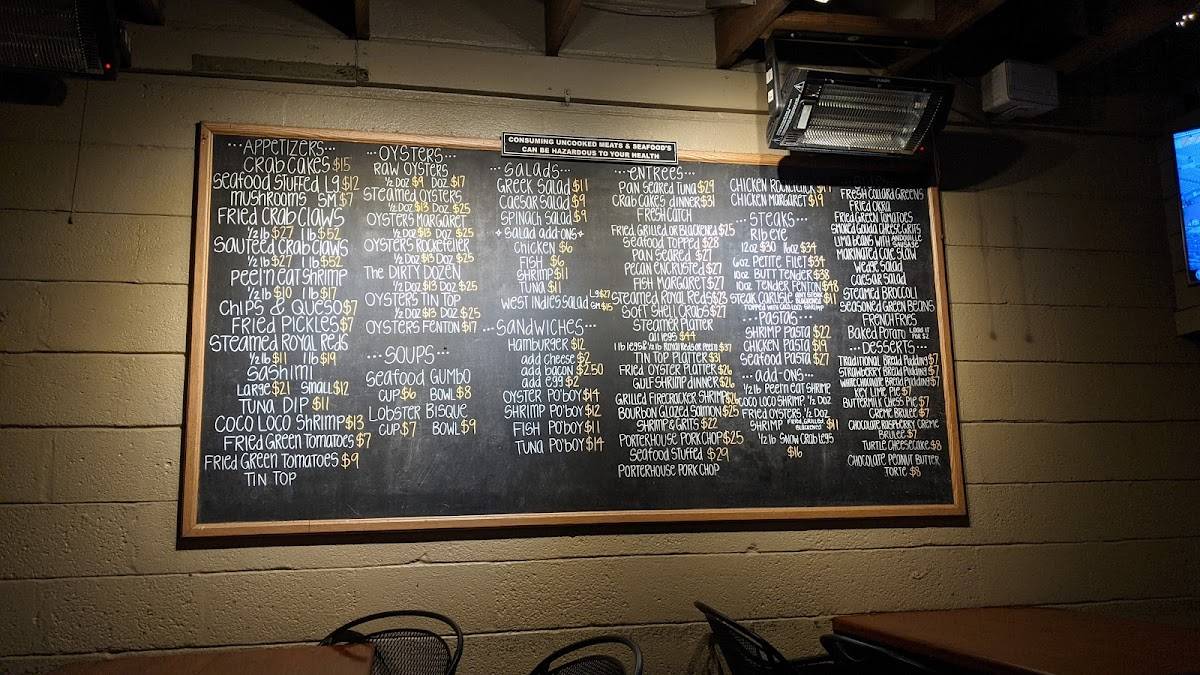 CONSUMING UNCOOKED MEATS & SEAFOOD'S
CAN BE HAZARDOUS TO YOUR HEALTH
···APPETIZERS···
CRAB CAKES $15
SEAFOOD STUFFED LG $12
MUSHROOMS SM $7
FRIED CRAB CLAWS
½ lb $27 1 lb $52
SAUTEED CRAB CLAWS
½ lb $27 1 lb $52
PEEL'N EAT SHRIMP
½ lb $10 1 lb $17
CHIPS & QUESO $7
FRIED PICKLES $7
STEAMED ROYAL REDS
½ lb $11 1 lb $19
SASHIMI
LARGE $21 SMALL $12
TUNA DIP $11
COCO LOCO SHRIMP $13
FRIED GREEN TOMATOES $7
FRIED GREEN TOMATOES $9
TIN TOP
···OYSTERS···
RAW OYSTERS
½ DOZ $9 DOZ $17
STEAMED OYSTERS
½ DOZ $13 DOZ $25
OYSTERS MARGARET
½ DOZ $13 DOZ $25
OYSTERS ROCKEFELLER
½ DOZ $13 DOZ $25
THE DIRTY DOZEN
½ DOZ $13 DOZ $25
OYSTERS TIN TOP
½ DOZ $13 DOZ $25
OYSTERS FENTON $17
···SOUPS···
SEAFOOD GUMBO
CUP $6 BOWL $8
LOBSTER BISQUE
CUP $7 BOWL $9
···SALADS···
GREEK SALAD $11
CAESAR SALAD $9
SPINACH SALAD $9
SALAD ADD-ONS
CHICKEN $6
FISH $6
SHRIMP $11
TUNA $11
WEST INDIES SALAD LG $27 SM $15
···SANDWICHES···
HAMBURGER $12
ADD CHEESE $2
ADD BACON $2.50
ADD EGG $2
OYSTER PO'BOY $14
SHRIMP PO'BOY $12
FISH PO'BOY $11
TUNA PO'BOY $14
···ENTREES···
PAN SEARED TUNA $29
CRAB CAKES DINNER $31
FRESH CATCH
FRIED GRILLED OR BLACKENED $25
SEAFOOD TOPPED $28
PAN SEARED $27
PECAN ENCRUSTED $27
FISH MARGARET $27
STEAMED ROYAL REDS $23
SOFT SHELL CRABS $27
STEAMER PLATTER
ALL LEGS $44
1 lb LEGS & ½ lb ROYAL REDS OR PEEL'N $37
TIN TOP PLATTER $31
FRIED OYSTER PLATTER $26
GULF SHRIMP DINNER $26
GRILLED FIRECRACKER SHRIMP $26
BOURBON GLAZED SALMON $25
SHRIMP & GRITS $22
PORTERHOUSE PORK CHOP $25
SEAFOOD STUFFED $29
PORTERHOUSE PORK CHOP
CHICKEN
CHICKEN MARGARET $19
···STEAKS···
RIB EYE
12oz $30 16oz $34
6oz PETITE FILET $34
10oz BUTT TENDER $38
10oz TENDER FENTON $48
STEAK CARLISLE $11
TOPPED WITH COCO LOCO SHRIMP
···PASTAS···
SHRIMP PASTA $22
CHICKEN PASTA $19
SEAFOOD PASTA $27
···ADD-ONS···
½ lb PEEL'N EAT SHRIMP
COCO LOCO SHRIMP, ½ DOZ
FRIED OYSTERS, ½ DOZ
SHRIMP FRIED, GRILLED BLACKENED $11
½ lb SNOW CRAB LEGS
$16
FRESH COLLARD GREENS
FRIED OKRA
FRIED GREEN TOMATOES
SMOKED GOUDA CHEESE GRITS
LIMA BEANS WITH ANDOUILLE SAUSAGE
MARINATED COLE SLAW
WEDGE SALAD
CAESAR SALAD
STEAMED BROCCOLI
SEASONED GREEN BEANS
FRENCH FRIES
BAKED POTATO LOAD IT FOR $2
···DESSERTS···
TRADITIONAL BREAD PUDDING $7
STRAWBERRY BREAD PUDDING $7
WHITE CHOCOLATE BREAD PUDDING $7
KEY LIME PIE $7
BUTTERMILK CHESS PIE $7
CREME BRULEE $7
CHOCOLATE RASPBERRY CREME
BRULEE $7
TURTLE CHEESECAKE $8
CHOCOLATE PEANUT BUTTER
TORTE $8